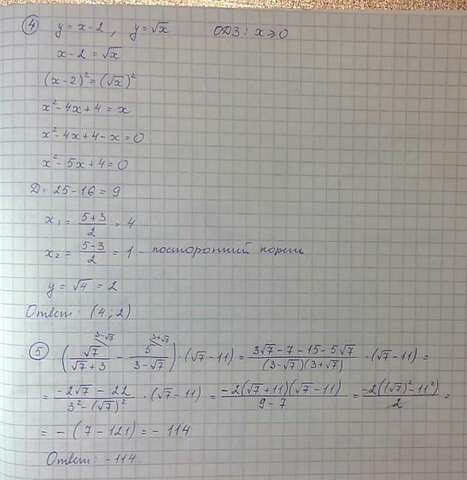 ④ y = x - 2 , y = √x ОДЗ: x ⩾ 0
x - 2 = √x
(x - 2)² = (√x)²
x² - 4x + 4 = x
x² - 4x + 4 - x = 0
x² - 5x + 4 = 0
D = 25 - 16 = 9
x₁ = (5+3)/2 = 4
x₂ = (5-3)/2 = 1 - посторонний корень
y = √4 = 2
Ответ: (4; 2)
⑤ (√7/(√7+3) - 5/(3-√7)) · (√7 - 11) = (3√7 - 7 - 15 - 5√7)/((3-√7)(3+√7)) · (√7 - 11) =
= (-2√7 - 22)/(3² - (√7)²) · (√7 - 11) = (-2(√7 + 11)(√7 - 11))/(9 - 7) = (-2((√7)² - 11²))/2 =
= - (7 - 121) = - 114
Ответ: - 114